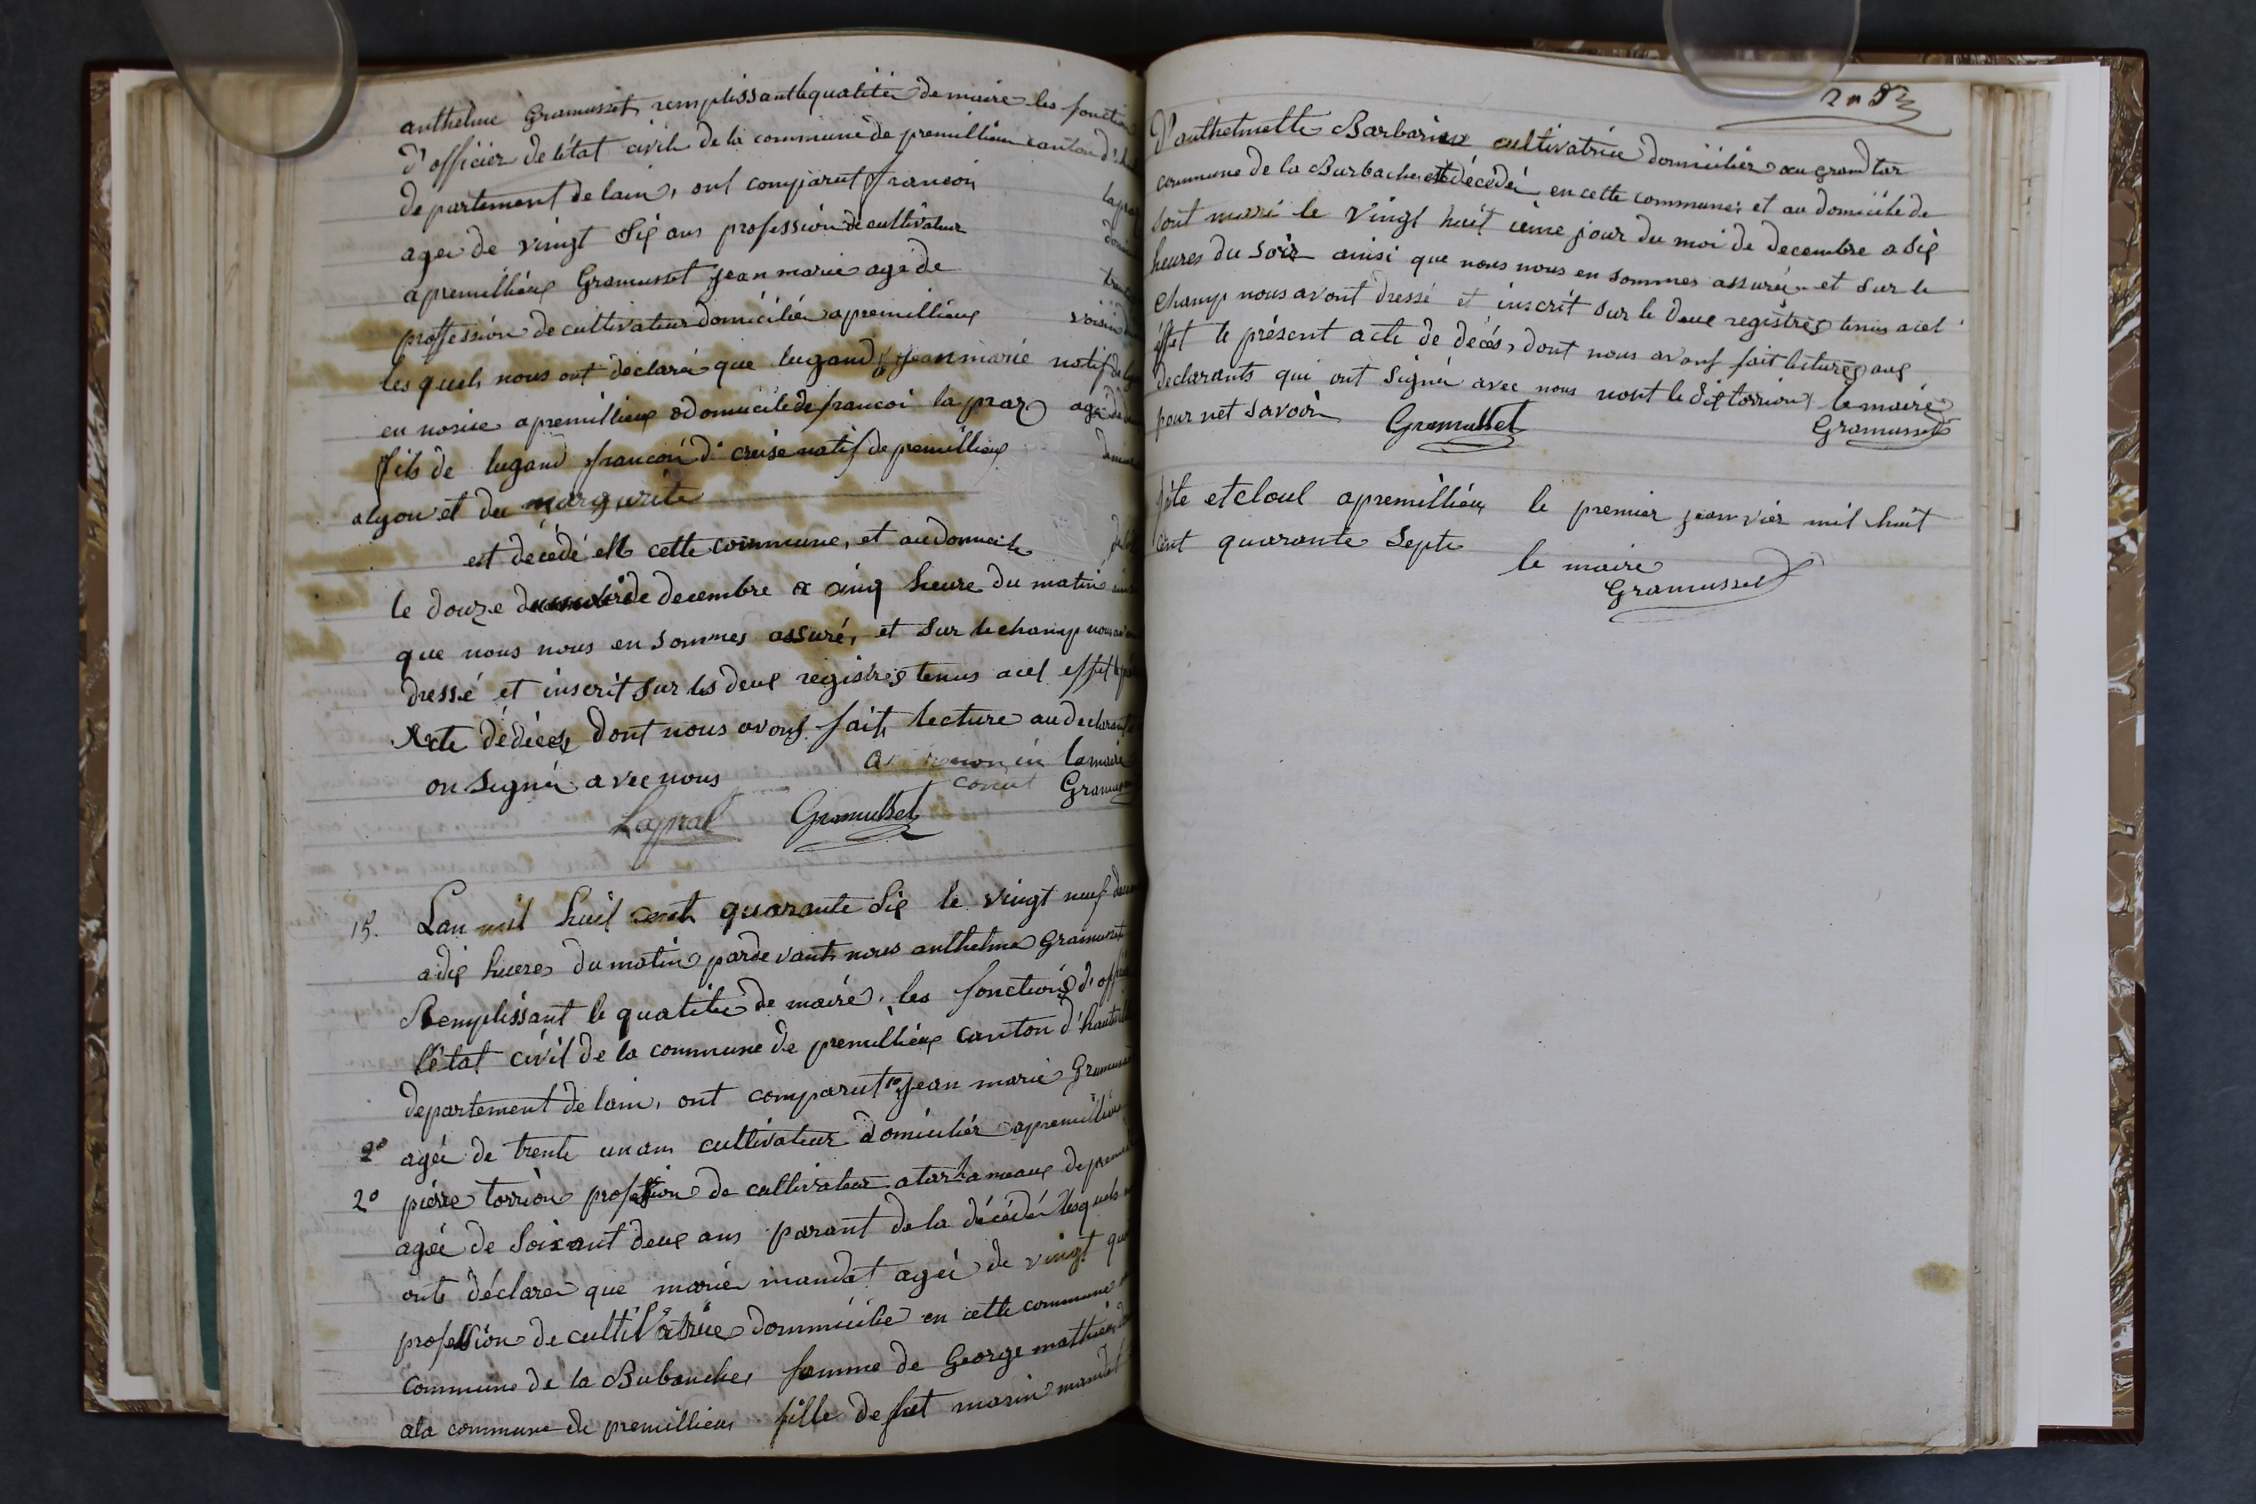 anthelme Gramusset remplissant le qualitée de maire les fonction
d'officier de l'état civil de la commune de premillieu canton d'
departement de lain, ont comparut francoi laprai
agée de vingt Six ans profession de cultivateur
a premillieux Gramusset jean marie age de
proffession de cultivateur domiciliée a premillieux voisin
les quels nous ont déclaréé que lugand jean marie natif de
en nosice a premillieux o domicile de francoi la praz agé de
fils de lugand francoi di creisé natif de premillieux
a lyon et de margurite
est décédé ell cette commune, et au domicile
le douze de decembre a cinq heure du matin
que nous nous en sommes assuré, et sur le champ nous
dressé et inscrit sur les deux registres tenus a cet effet
Acte dédécès dont nous avons fait lecture au declarant
on signée avec nous le maire
Laprat Gramusset Gramusset
15. Lan mil huit cent quarante Six le vingt neuf
a dix hueres du matin pardevant nous anthelme Gramuset
Remplissant le qualitée de mairé, les fonctions d'
l'état civil de la commune de premillieux canton d'hauteville
departement de lain, ont comparut 1º jean marie Gramusset
2º agée de trente un ans cultivateur domiciliér a premillieux
2º pierre torrion profession de cultivateur a tarhameaux de
agée de Soixant deux ans parant de la décédé lesquels
onts déclaréé que mariée mandat ageé de vingt
profession de cultivatrice dommicilie en cette commune
commune de la Bubanche, famme de George mathieu
a la commune de premillieu fille de fut marin mandat
D'anthelmette Barbarin cultivatrice domiciliér au grand tar
commune de la Burbache est décédéé en cette commune, et au domicile de
sont mari le vingt huit ième jour du moi de decembre a Six
heures du soir ainsi que nous nous en sommes assurée et sur le
champ nous avont dressé et inscrit sur le deux registres tenus a cet
éffet le présent acte de décés, dont nous avons fait lecture aux
declarants qui ont signée avec nous nont le dit torrion le maire
pour net savoir Gramusset Gramusset
féte et cloul a premillieu le premier janvier mil huit
cent quarante Septe
le maire
Gramusset